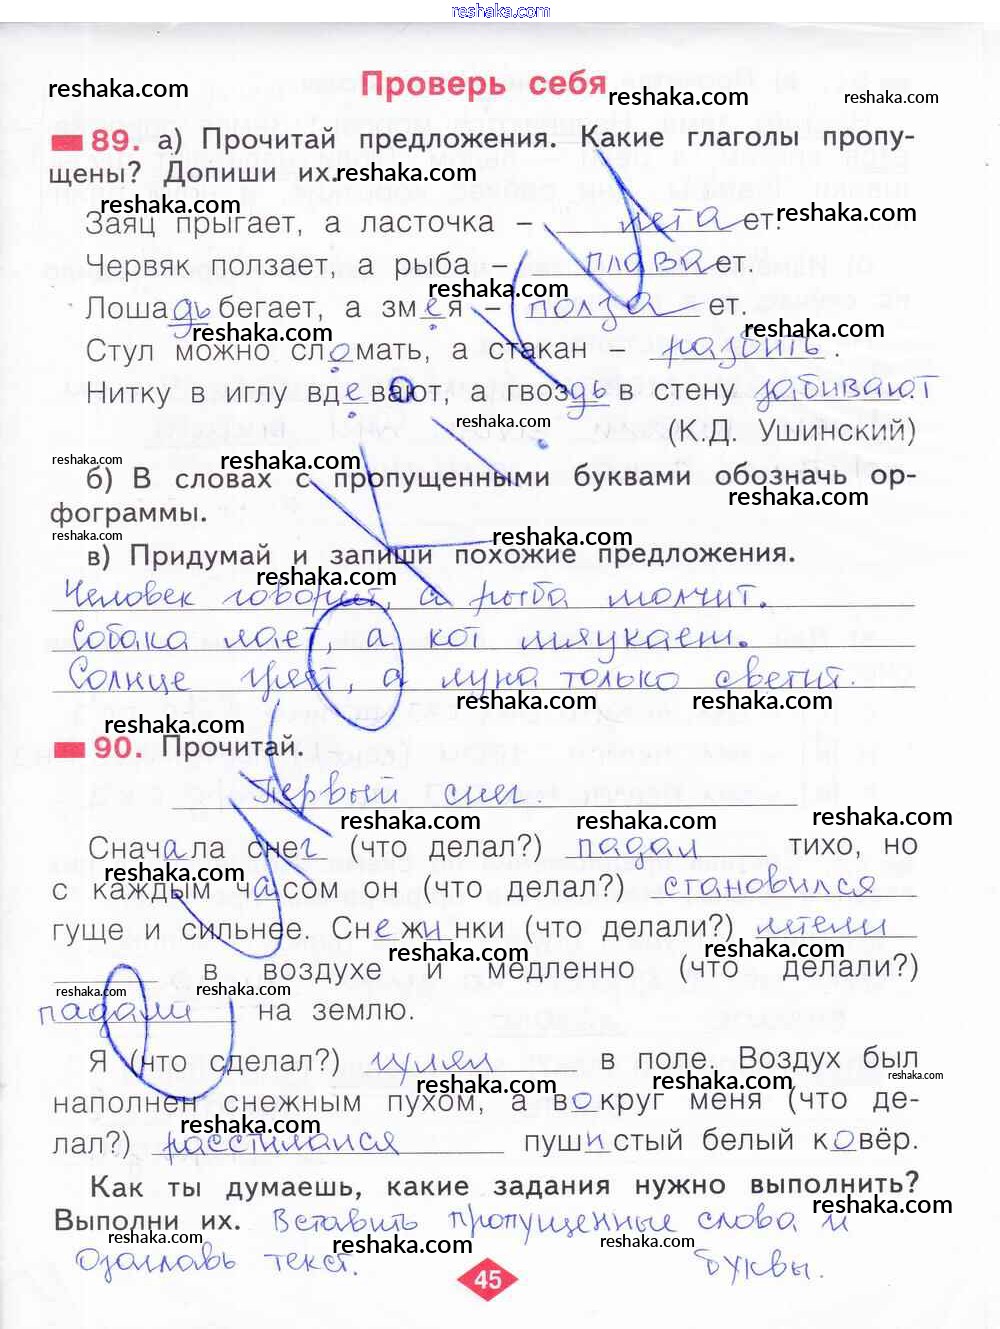 reshaka.com
Проверь себя
reshaka.com reshaka.com reshaka.com
89. а) Прочитай предложения. Какие глаголы пропу-
щены? Допиши их. reshaka.com
reshaka.com reshaka.com
Заяц прыгает, а ласточка – летает.
Червяк ползает, а рыба – плавает.
reshaka.com
Лошадь бегает, а змея – ползает.
reshaka.com reshaka.com
Стул можно сломать, а стакан – разбить.
Нитку в иглу вдевают, а гвоздь в стену забивают.
(К.Д. Ушинский)
reshaka.com reshaka.com
б) В словах с пропущенными буквами обозначь ор-
reshaka.com
фограммы.
reshaka.com reshaka.com
в) Придумай и запиши похожие предложения.
reshaka.com
Человек говорит, а рыба молчит.
Собака лает, а кот мяукает.
Солнце греет, а луна только светит.
reshaka.com reshaka.com
reshaka.com
90. Прочитай.
reshaka.com
Первый снег.
reshaka.com reshaka.com reshaka.com
Сначала снег (что делал?) падал тихо, но
reshaka.com
с каждым часом он (что делал?) становился
гуще и сильнее. Снежинки (что делали?) летели
reshaka.com reshaka.com
в воздухе и медленно (что делали?)
reshaka.com reshaka.com
падали на землю.
reshaka.com
Я (что сделал?) гулял в поле. Воздух был
reshaka.com reshaka.com reshaka.com
наполнен снежным пухом, а вокруг меня (что де-
reshaka.com
лал?) расстилался пушистый белый ковёр.
Как ты думаешь, какие задания нужно выполнить?
reshaka.com
Выполни их. Вставить пропущенные слова и
reshaka.com reshaka.com reshaka.com
Озаглавь текст. буквы.
45